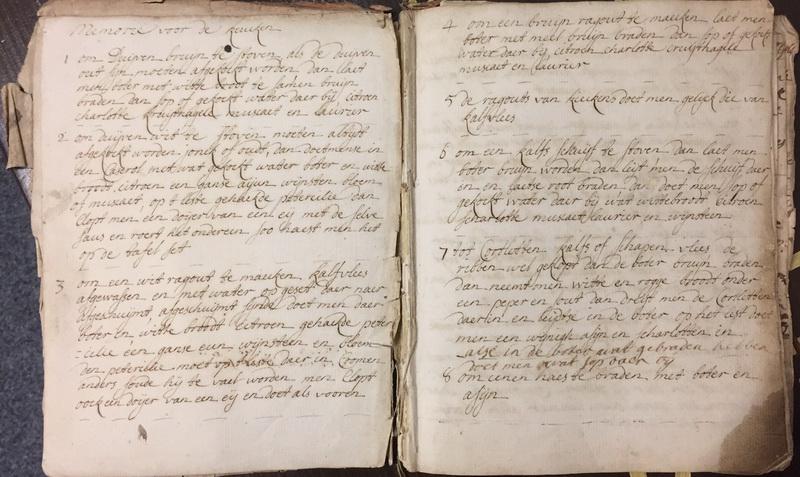 Memorie voor de keuken
1 om Duijven bruijn te stoven als de duijven
out sijn moeten afgekoft worden dan laet
men boter met witte broot te samen bruijn
braden dan sop of gekoft water daer bij citroen
charlotte kruijtnagle muscaet en laurier
2 om duijven wit te stoven moeten altijt
afgekoft worden jonck of oudt, dan doetmense in
een caserol met wat gekoft water boter en witte
broodt, citroen een ganse aijun wijnsteen bloem
of muscaet, op t leste gehackte peterselie dan
clopt men een doijer van een eij met de selve
saus en roert het ondereen soo haest men het
op de tafel set
3 om een wit ragout te maeken kalfvlees
afgewassen en met water opgeset daer naer
afgeschuijmt, afgeschuijmt sijnde doet men daer
boter en witte broodt citroen gehackte peter
-celie een ganse eun wijnsteen en bloem
den peterselie moet op t leste daer in comen
anders soude hij te vael worden men clopt
oock een doijer van een eij en doet als vooren
4 om een bruijn ragout te maecken laet men
boter met meel bruijn braden dan sop of gekoft
water daer bij citroen charlotte cruijtnagle
muscaet en laurier
5 de ragouts van kieckens doet men gelijck die van
kalfvlees
6 om een kalfs schijf te stoven dan laet men
boter bruijn worden dan leijt men de schijf daer
en en laetse root braden dan doet men sop of
gekoft water daer bij wat wittebroodt citroen
scharlotte muscaet laurier en wijnsteen
7 tot Cortletten kalfs of schapen vlees de
ribben wel geklopt dan de boter bruijn braden
dan neemt men witte en rogge broodt onder
een peper en sout dan drijft men de Cortletten
daer in en leijdtse in de boter op het lest doet
men een weijnigh asijn en charlotten en
alse in de boter wat gebraden hebben
doet men wat sop over bij
8 om eenen haes te braden met boter en
asijn